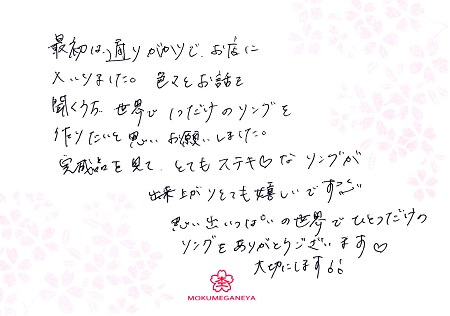 最初は、通りがかりで、お店に
入いりました。色々とお話を
聞くうち、世界で1つだけのリングを
作りたいと思い お願いしました。
完成品を見て、とてもステキ♡な リングが
出来上がりとても嬉しいです
思い出いっぱいの世界でひとつだけの
リングをありがとうございます♡
大切にします!!
MOKUMEGANEYA